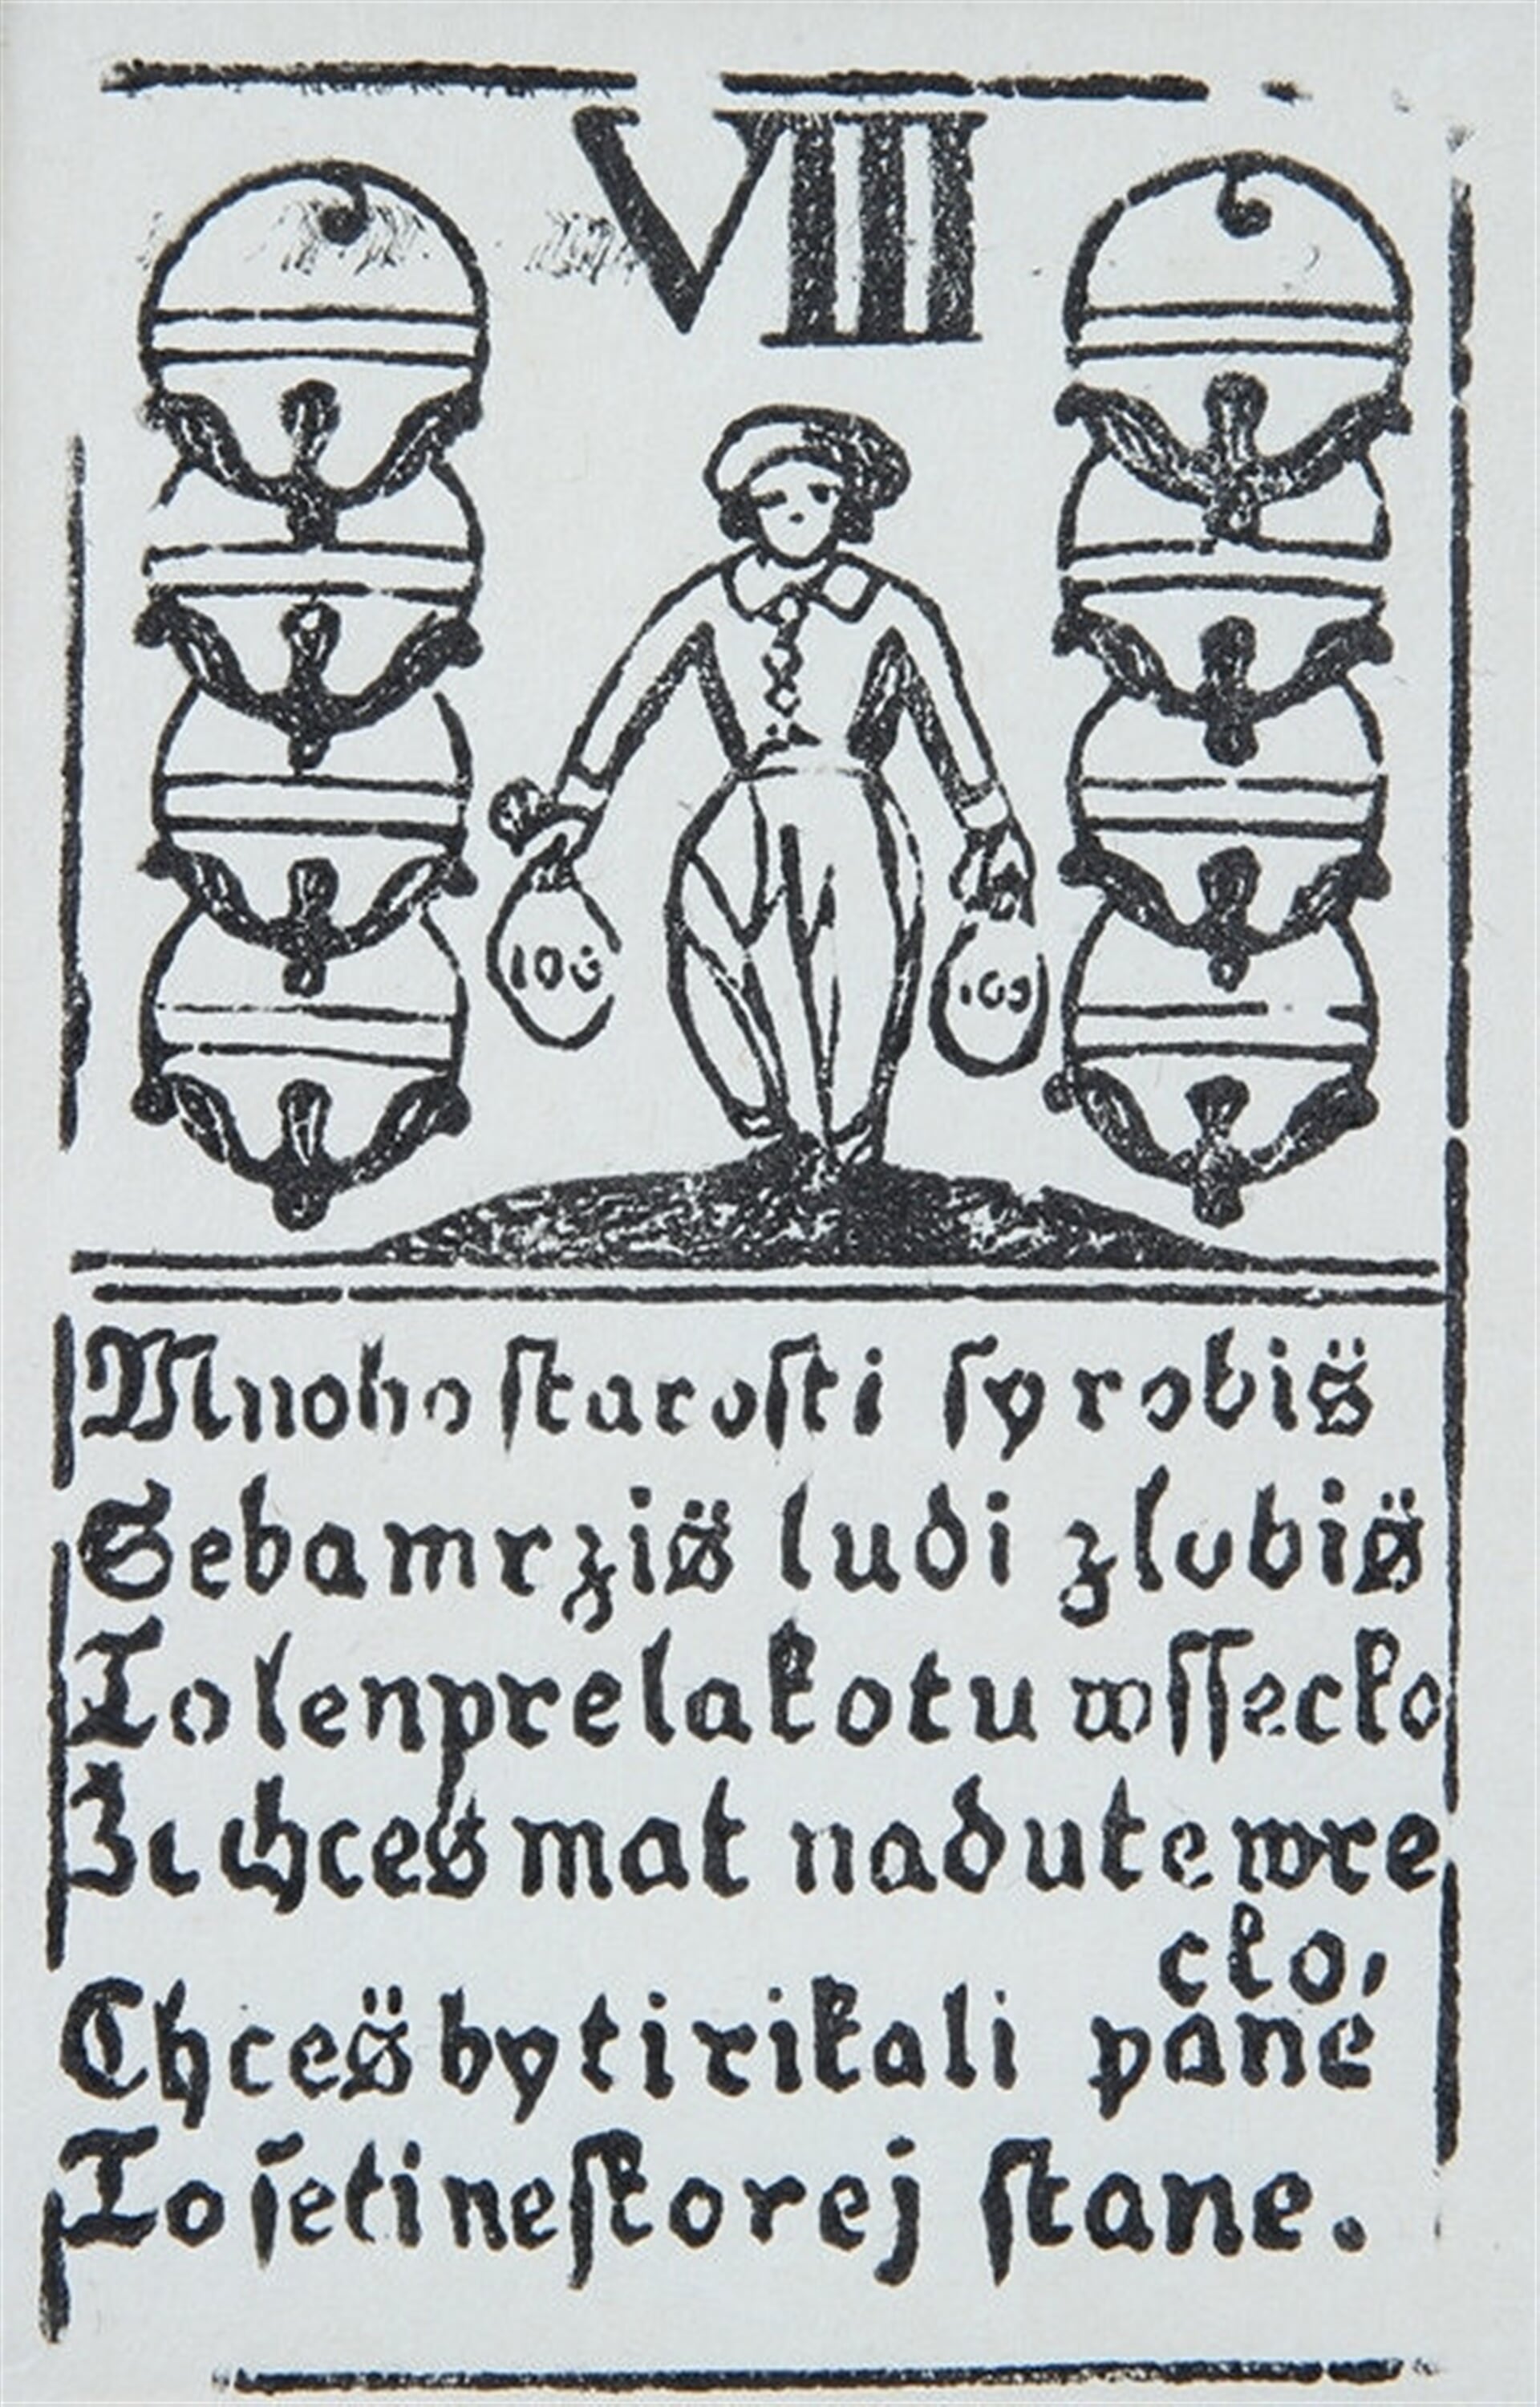 VIII
100 100
Mnoho starosti syrobis̈
Sebamrzis̈ ludi zlobis̈
To lenprelakotu wssecko
Zi chces mat nadutewre
cko,
Chces̈ bytirikali pane
To setineskorej stane.